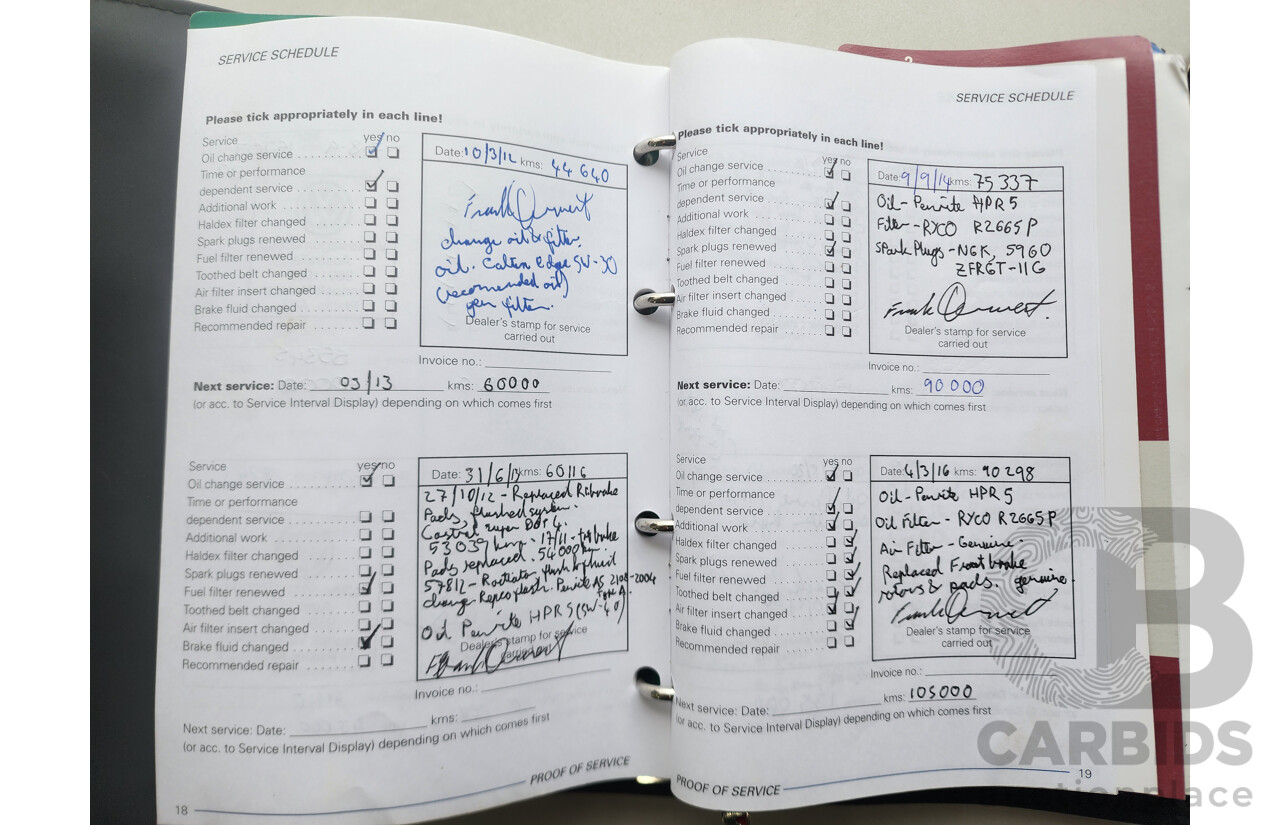 SERVICE SCHEDULE
Please tick appropriately in each line!
Service yes no
Oil change service
Time or performance
dependent service
Additional work
Haldex filter changed
Spark plugs renewed
Fuel filter renewed
Toothed belt changed
Air filter insert changed
Brake fluid changed
Recommended repair
Date: 10/3/12 kms: 44 640
Frank
change oil & filter.
oil. Edge 5W-30
(recomended oil)
filter.
Dealer's stamp for service
carried out
Invoice no.:
Next service: Date: 03/13 kms: 60000
(or acc. to Service Interval Display) depending on which comes first
Service yes no
Oil change service
Time or performance
dependent service
Additional work
Haldex filter changed
Spark plugs renewed
Fuel filter renewed
Toothed belt changed
Air filter insert changed
Brake fluid changed
Recommended repair
Date: 31/6/13 kms: 60116
27/10/12 - Replaced R brake
Pads, flushed system.
Castrol super DOT 4.
53039 kms. 17/11 - brake
Pads replaced. 54000 km
57812 - Radiator flush & fluid
change Repco flush. Penrite AS 2108-2004
Type A.
Oil Penrite HPR 5 (5W-40)
Dealer's stamp for service
carried out
Frank
Invoice no.:
Next service: Date: kms:
(or acc. to Service Interval Display) depending on which comes first
PROOF OF SERVICE
18
2
SERVICE SCHEDULE
Please tick appropriately in each line!
Service yes no
Oil change service
Time or performance
dependent service
Additional work
Haldex filter changed
Spark plugs renewed
Fuel filter renewed
Toothed belt changed
Air filter insert changed
Brake fluid changed
Recommended repair
Date: 9/9/14 kms: 75337
Oil - Penrite HPR 5
Filter - RYCO R2665P
Spark Plugs - NGK, 5960
ZFR6T-11G
Frank
Dealer's stamp for service
carried out
Invoice no.:
Next service: Date: kms: 90 000
(or acc. to Service Interval Display) depending on which comes first
Service yes no
Oil change service
Time or performance
dependent service
Additional work
Haldex filter changed
Spark plugs renewed
Fuel filter renewed
Toothed belt changed
Air filter insert changed
Brake fluid changed
Recommended repair
Date: 4/3/16 kms: 90298
Oil - Penrite HPR 5
Oil Filter - RYCO R2665P
Air Filter - Genuine.
Replaced Front brake
rotors & pads, genuine
Frank
Dealer's stamp for service
carried out
Invoice no.:
Next service: Date: kms: 105000
(or acc. to Service Interval Display) depending on which comes first
PROOF OF SERVICE
19
CB
CARBIDS